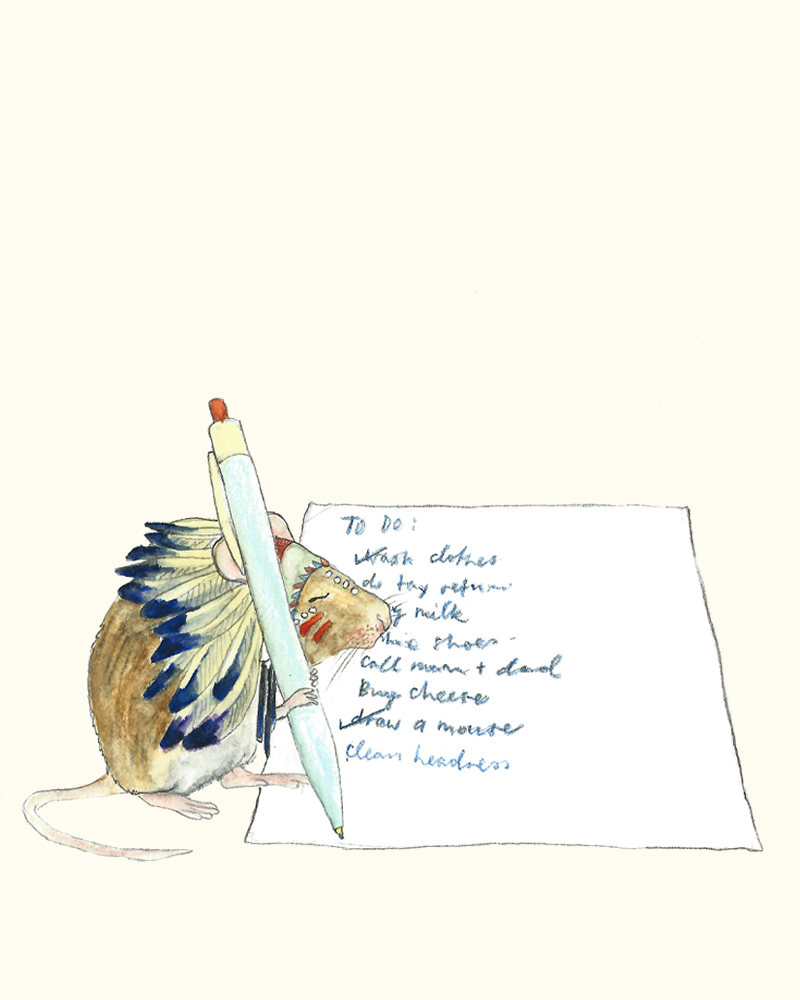 TO DO:
Wash clothes
do tax return
y milk
shoes
Call mam + dad
Buy cheese
draw a mouse
clean headress